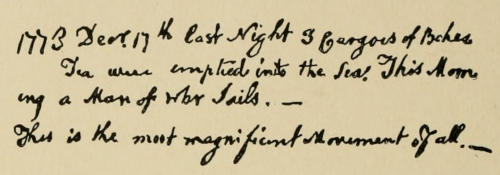 1773 Decr. 17th Last Night 3 Cargoes of Bohea
Tea were emptied into the Sea. This Morn
ing a Man of War Sails. —
This is the most magnificent Movement of all. —